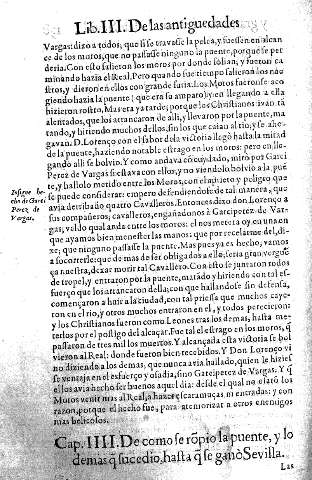 Lib. III. De las antiguedades
Vargas: dixo a todos; que si se travasse la pelea, y fuessen en alcan
ce de los moros, que no passasse ninguno la puente, porque se per
deria. Con esto salieron los moros por donde solian; y fueron ca
minando hazia el Real. Pero quando fue tiẽpo salieron los nůe
stros, y dieron en ellos con grande furia. Los Moros fueronse aco
giendo hazia la puente (que era su amparo) y en llegando a ella
hizieron rostro, mas era ya tarde; porque los Christianos ivan tã
alentados, que los arrancaron de alli, y llevaron por la puente, ma
tando, y hiriendo muchos dellos, sin los que caian al rio; y se aho-
gavan. D. Lorenço con el sabor dela victoria llegò hasta la mitad
de la puente, haziendo notable estrago en los moros: pero en lle-
gando alli se bolvio. Y como andava ẽscuydado, mirò por Garci
Perez de Vargas si estava con ellos, y no viendolo bolvio a la puẽ
te, y hallolo metido entre los Moros, con el aprieto y peligro que
se puede considerar: empero defendiendose de tal manera, que
avia derribado quatro Cavalleros. Entonces dixo don Lorenço a
sus compañeros; cavalleros, engañadonos à Garciperez de Var-
gas; veldo qual anda entre los moros: el nos metera oy en una en
que ayamos bien menester las manos: que por recelarme del, di-
xe; que ninguno passasse la puente. Mas pues ya es hecho; vamos
a socorrerle: que de mas de ser obligados a ello, seria gran vergue
ça nuestra, dexar morir tal Cavallero. Con esto se juntaron todos
de tropel, y entraron por la puente, matãdo y hiriendo con tal es-
fuerço que los arrancaron della; con que hallandose sin defensa,
començaron a huir a la ciudad, con tal priessa que muchos caye-
ron en el rio, y otros muchos entraron en el, y todos perecieron:
y los Christianos fueron como Leones tras los demas, hasta me-
terlos por el postigo del alcaçar. Fue tal el estrago en los moros, q̃
passaron de tres mil los muertos. Y alcançada esta victoria se bol
vieron al Real: donde fueron bien recebidos. Y Don Lorenço vi
no diziendo a los demas; que nunca avia hallado, quien le hiziei
se ventaja en el esfuerço y osadia, sino Garciperez de Vargas. Y q̃
el los avia hecho ser buenos aquel dia: desde el qual no osarõ los
Moros venir mas al Real, a hazer escaramuças, ni entradas; y con
razon, porque el hecho fue, para atemorizar a otros enemigos
mas belicosos.
hecho de Garci
Perez de
Vargas.
Cap. IIII. De como se rõpio la puente, y lo
demas q̃ sucedio, hasta q̃ se ganò Sevilla.
Las